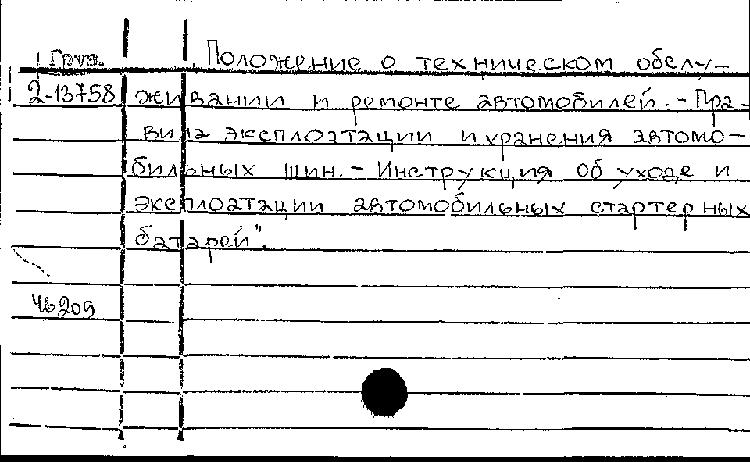 Груз. Положение о техническом обслу-
2-13758 живании и ремонте автомобилей. - Пра-
вила эксплоатации и хранения автомо-
бильных шин. - Инструкция об уходе и
эксплоатации автомобильных стартерных
батарей".
46209